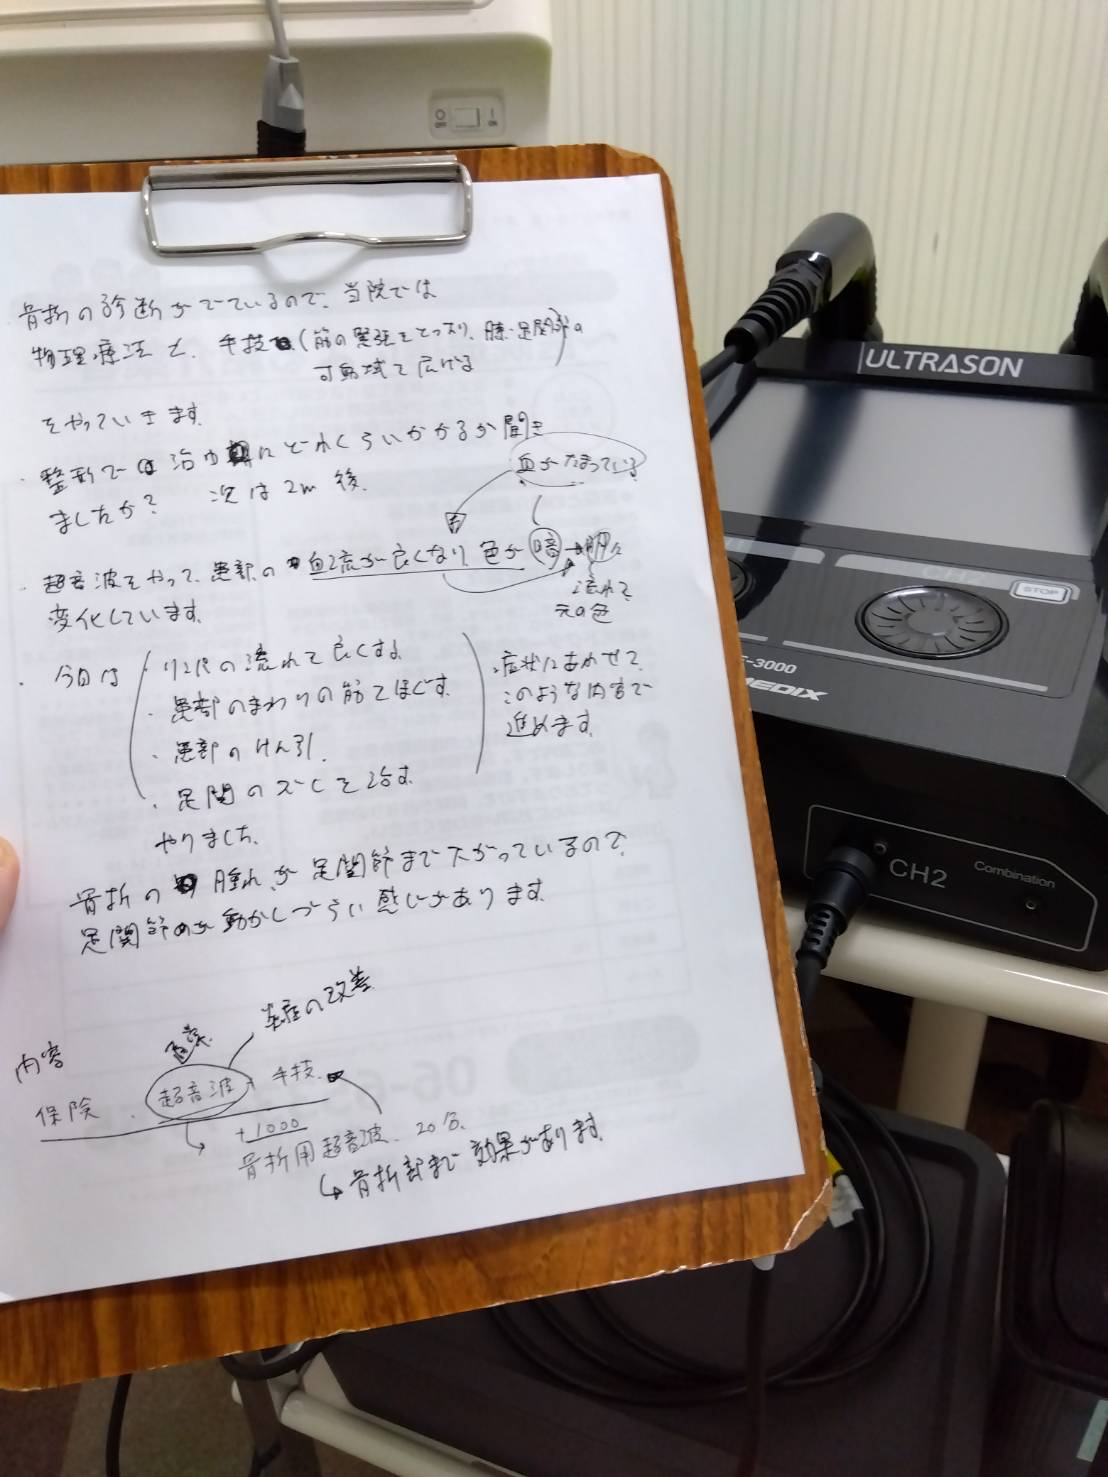 骨折の診断がでているので、当院では
物理療法と、手技（筋の緊張をとったり、膝・足関節の
可動域を広げる）
をやっていきます。
・整形では治ゆにどれくらいかかるか聞き
ましたか？ 次は2m後。
血がたまっている
・超音波をやって、患部の血流が良くなり 色が 暗→明に
変化しています。
流れて
元の色
・今日は
リンパの流れを良くする
・患部のまわりの筋をほぐす。
・患部のけん引。
・足関のズレを治す。
やりました。
症状にあわせて、
このような内容で
進めます。
骨折の腫れが足関節まで下がっているので、
足関節が動かしづらい感じがあります。
内容
炎症の改善
保険 . 超音波 + 手技
+1000
骨折用超音波、20分、
↳骨折部まで効果があります。
OFF
ON
ULTRASON
CH2
STOP
-3000
MEDIX
CH2
Combination